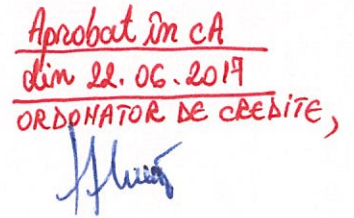 Aprobat în CA
din 22.06.2017
ORDONATOR DE CREDITE,